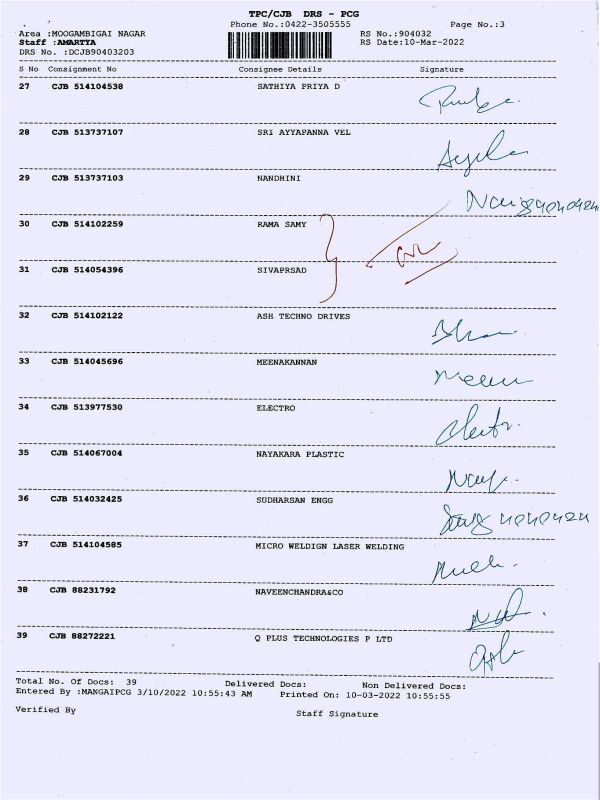 TPC/CJB DRS - PCG
Phone No.:0422-3505555 Page No.:3
Area :MOOGAMBIGAI NAGAR RS No.:904032
Staff :AMARTYA RS Date:10-Mar-2022
DRS No. :DCJB90403203
S No Consignment No Consignee Details Signature
27 CJB 514104538 SATHIYA PRIYA D
28 CJB 513737107 SRI AYYAPANNA VEL
29 CJB 513737103 NANDHINI
30 CJB 514102259 RAMA SAMY
31 CJB 514054396 SIVAPRSAD
32 CJB 514102122 ASH TECHNO DRIVES
33 CJB 514045696 MEENAKANNAN
34 CJB 513977530 ELECTRO
35 CJB 514067004 NAYAKARA PLASTIC
36 CJB 514032425 SUDHARSAN ENGG
37 CJB 514104585 MICRO WELDIGN LASER WELDING
38 CJB 88231792 NAVEENCHANDRA&CO
39 CJB 88272221 Q PLUS TECHNOLOGIES P LTD
Total No. Of Docs: 39 Delivered Docs: Non Delivered Docs:
Entered By :MANGAIPCG 3/10/2022 10:55:43 AM Printed On: 10-03-2022 10:55:55
Verified By Staff Signature